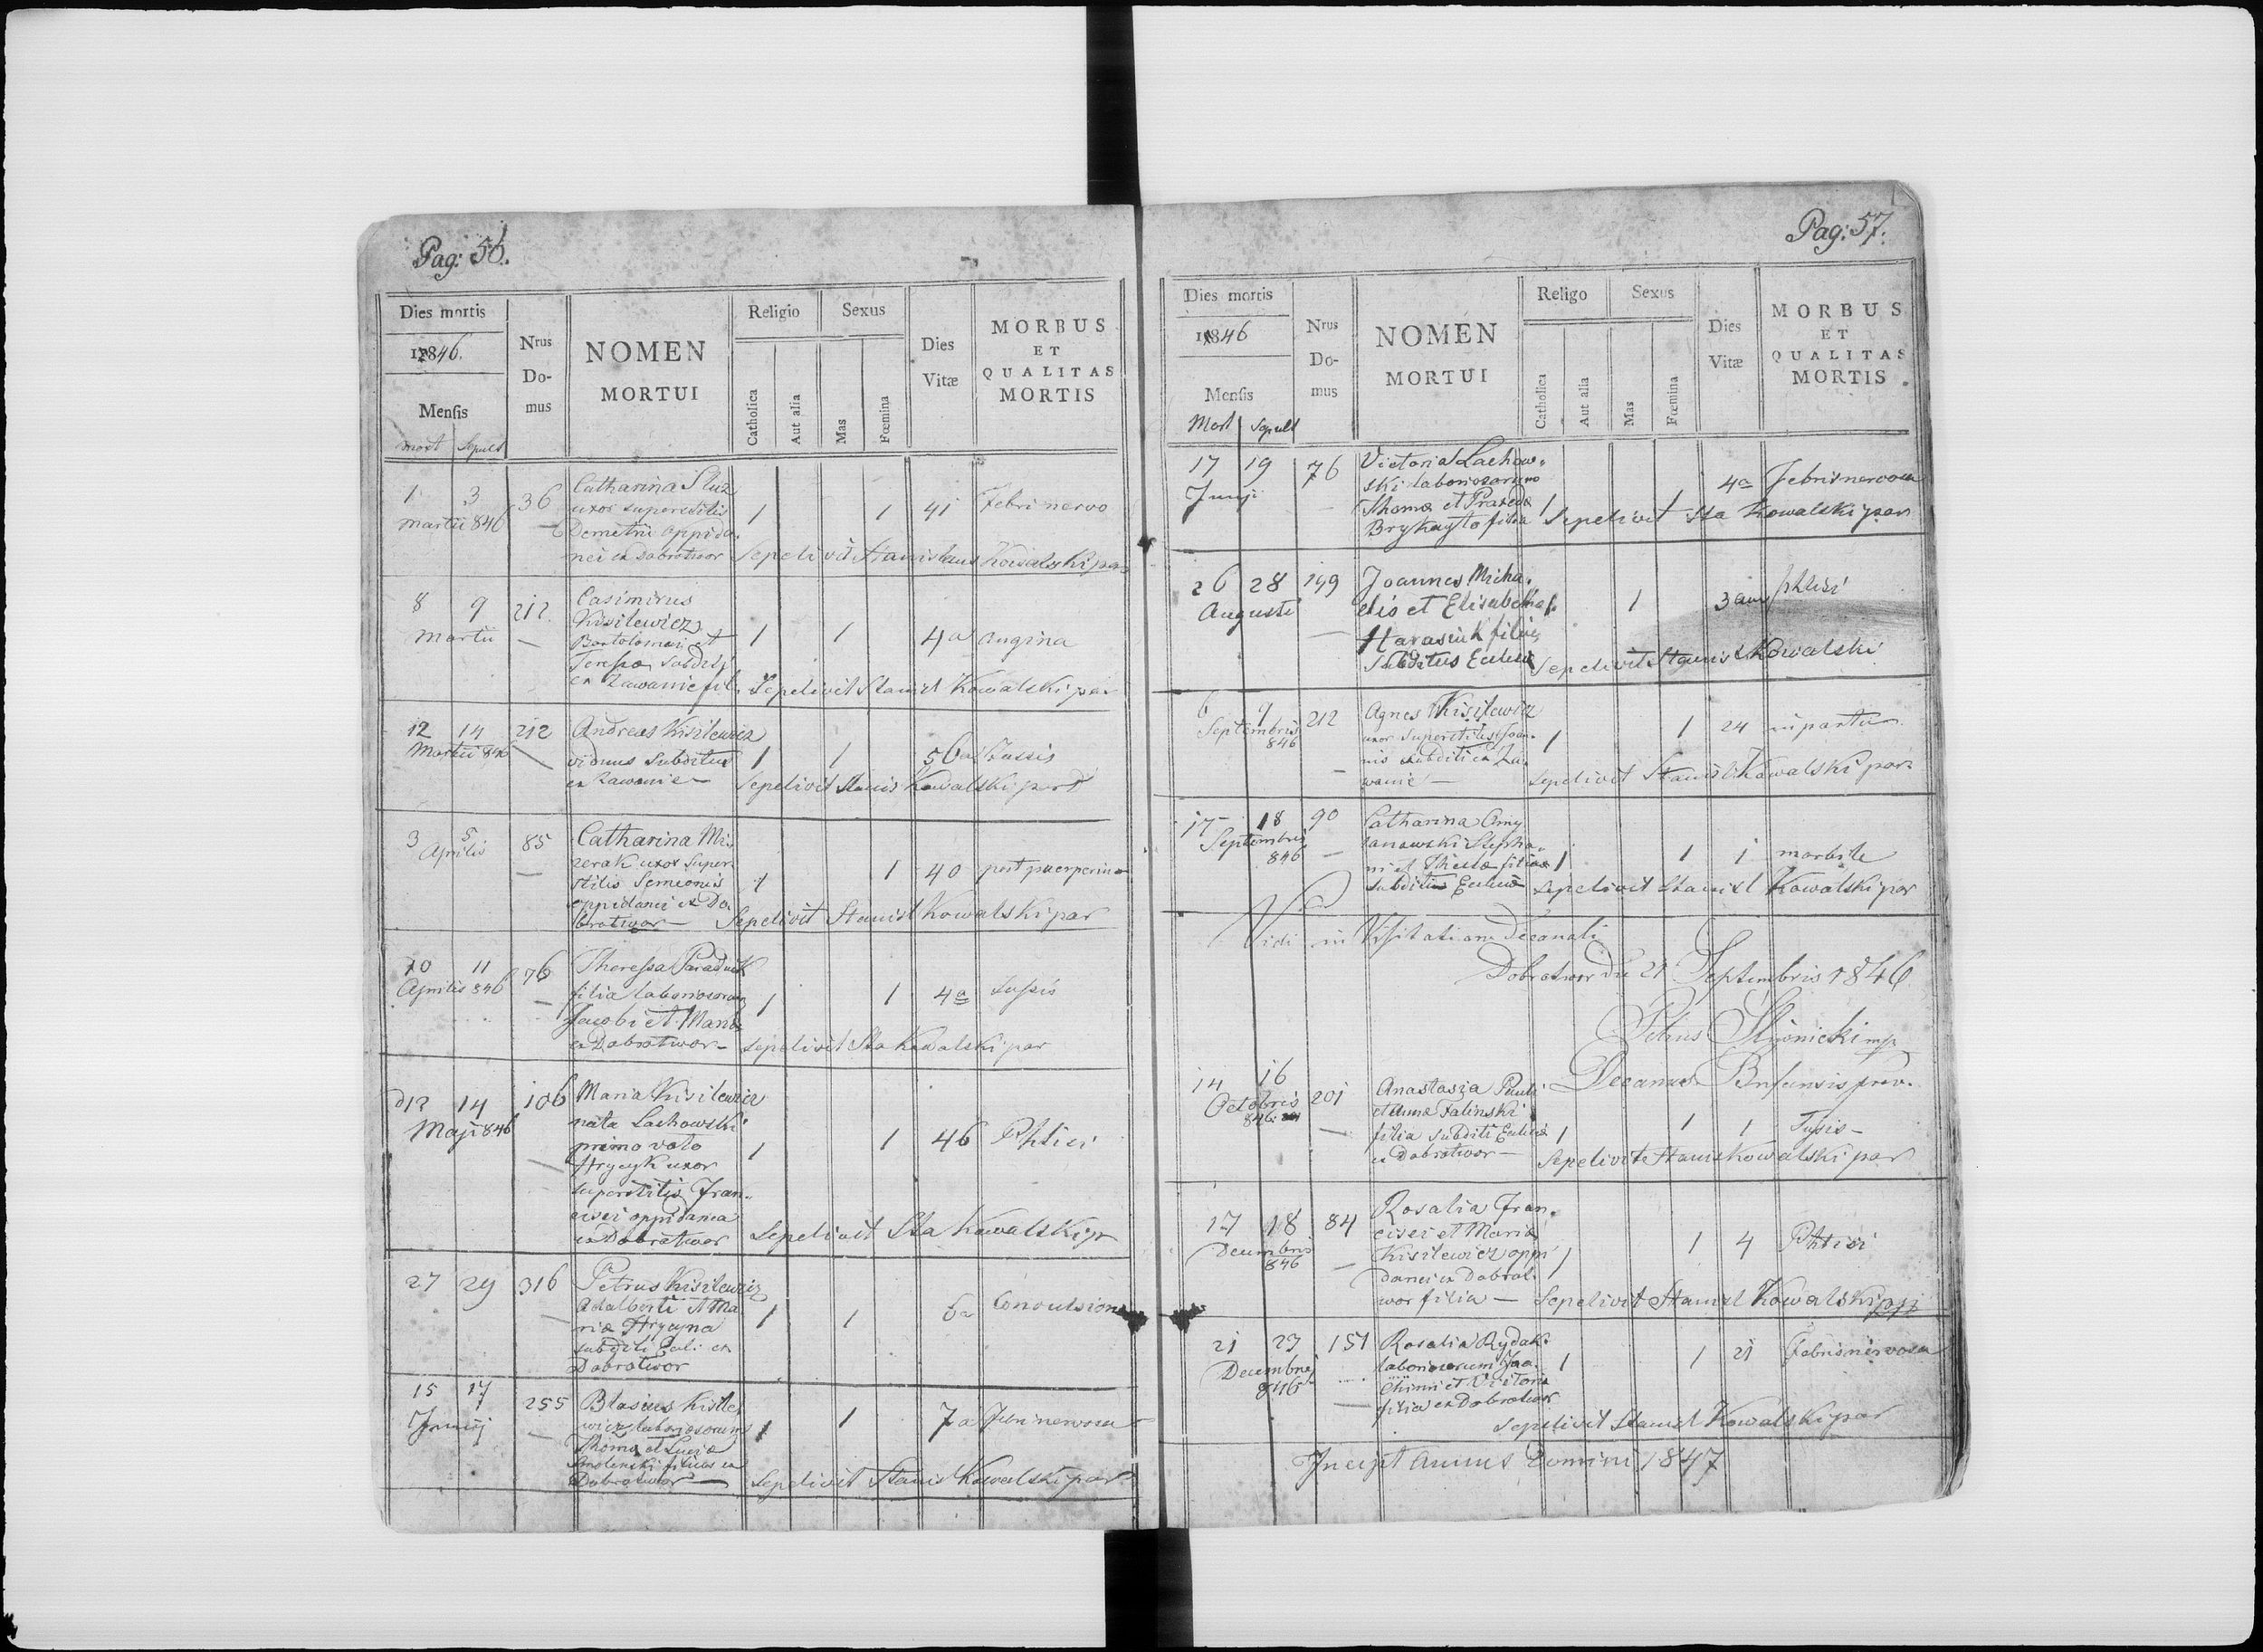 Pag: 56.
Dies mortis
1846.
Mensis
mort Sepult
Nrus
Do-
mus
NOMEN
MORTUI
Religio
Catholica
Aut alia
Sexus
Mas
Fœmina
Dies
Vitæ
MORBUS
ET
QUALITAS
MORTIS
1 3
Martii 846
36
Catharina Sluz
uxor superstitis
Demetrii oppida-
nei ex Dobrotwor
1 1 41 Febri nervo
Sepelivit Stanislaus Kowalski par
8 9
Martii
212.
Casimirus
Kisilewicz
Bartolomei et
Teressa subditi
ex Zawonie fil.
1 1 4a angina
Sepelivit Stanisl Kowalski par
12 14
Martii 846
212
Andreas Kisilewicz
viduus subditus
ex Zawonie
1 1 56a Tussis
Sepelivit Stanis Kowalski par
3 5
Aprilis
85
Catharina Mi-
zerak uxor super-
stitis Semionis
oppidanei ex Do-
brotwor
1 1 40 post puerperium
Sepelivit Stanisl Kowalski par
10 11
Aprilis 846
76
Theressa
filia laboriosorum
Jacobi et Maria
ex Dobrotwor
1 1 4a tussis
Sepelivit Sta Kowalski par
12 14
Maji 846
106
Maria Kisilewicz
nata Lachowski
primo voto
Hrycyk uxor
superstitis Fran-
cisci oppidanea
ex Dobrotwor
1 1 46 Phtisi
Sepelivit Sta Kowalski par
27 29
316
Petrus Kisilewicz
Adalberti et Ma-
ria Hrycyna
subditi ex
Dobrotwor
1 1 6a Convulsion
15 17
Junij
255
Blasius Kisile-
wicz laboriosorum
Thoma et Lucia
Smolenski filius ex
Dobrotwor
1 1 7a Febri nervosa
Sepelivit Stanis Kowalski par
Pag: 57.
Dies mortis
1846
Mensis
Mort Sepult
Nrus
Do-
mus
NOMEN
MORTUI
Religo
Catholica
Aut alia
Sexus
Mas
Fœmina
Dies
Vitæ
MORBUS
ET
QUALITAS
MORTIS
17 19
Junji
76
Victoria Lachow-
ski laboriosorum
Thoma et Praxeda
Brykayto filia
1 1 4a Febris nervosa
Sepelivit Sta Kowalski par
26 28
Augusti
149
Joannes Micha-
elis et Elisabetha
Harasiuk filius
subditus Ecclesia
1 3 phtisi
Sepelivit Stanisl Kowalski
6 9
Septembris
846
212
Agnes Kisilewicz
uxor superstitis Joan-
nis subditi ex Za-
wonie
1 1 24 in partu
Sepelivit Stanisl Kowalski par
17 18
Septembris
846
90
Catharina
Stepha-
ni et Thecla filia
subditus Ecclesia
1 1 1 morbile
Sepelivit Stanisl Kowalski par
Vidi in Visitatione Decanali
Dobrotwor die 21 Septembris 1846
Petrus mp
Decanus
14 16
Octobris
846
201
Anastazia Pauli
et Anna Falinski
filia subditi Ecclesia
ex Dobrotwor
1 1 1 Tusis
Sepelivit Stanis Kowalski par
17 18
Decembris
846
84
Rosalia Fran-
cisci et Maria
Kisilewicz oppi
danei ex Dobrot-
wor filia
1 1 4 Phtisi
Sepelivit Stanisl Kowalski
21 23
Decembris
846
151
Rosalia Rydak
laboriosorum Joa-
chimi et Victoria
filia ex Dobrotwor
1 1 21 Febris nervosa
Sepelivit Stanisl Kowalski par
Incipit Annus Domini 1847